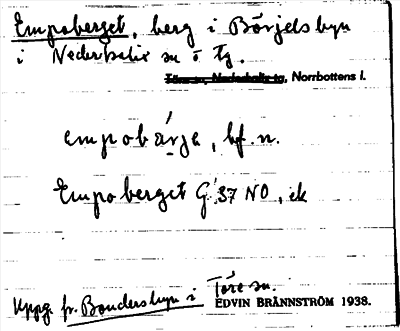 Empoberget, berg i Börjelsbyn
i Nederkalix sn o tg.
Töre sn, Nederkalix tg, Norrbottens l.
empobárje, bf. n.
Empoberget G 37 NO, ek
Uppg. fr. Bondersbyn i Töre sn.
EDVIN BRÄNNSTRÖM 1938.